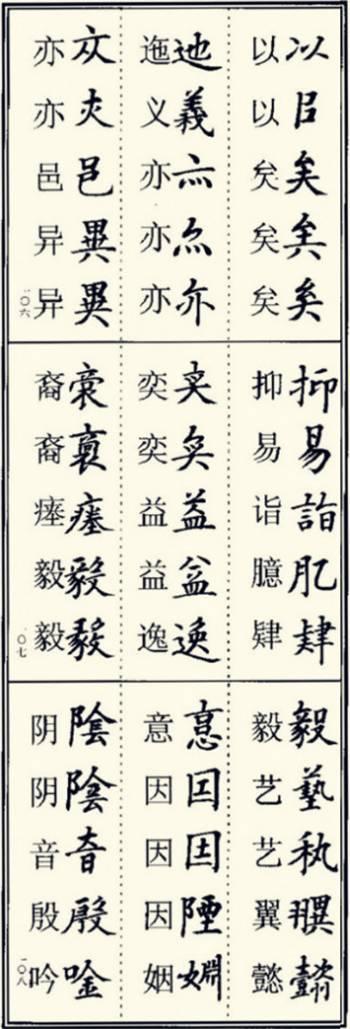 以㠯矣矣矣
以以矣矣矣
迆義亦亦亦
迤义亦亦亦
亦亦邑異異
亦亦邑异异
一〇六
抑易詣肊肄
抑易诣臆肄
奕奕益益逸
奕奕益益逸
裔裔瘞毅毅
裔裔瘗毅毅
一〇七
毅藝秇翼懿
毅艺艺翼懿
意因因陻姻
意因因因姻
陰陰音殷唫
阴阴音殷吟
一〇八